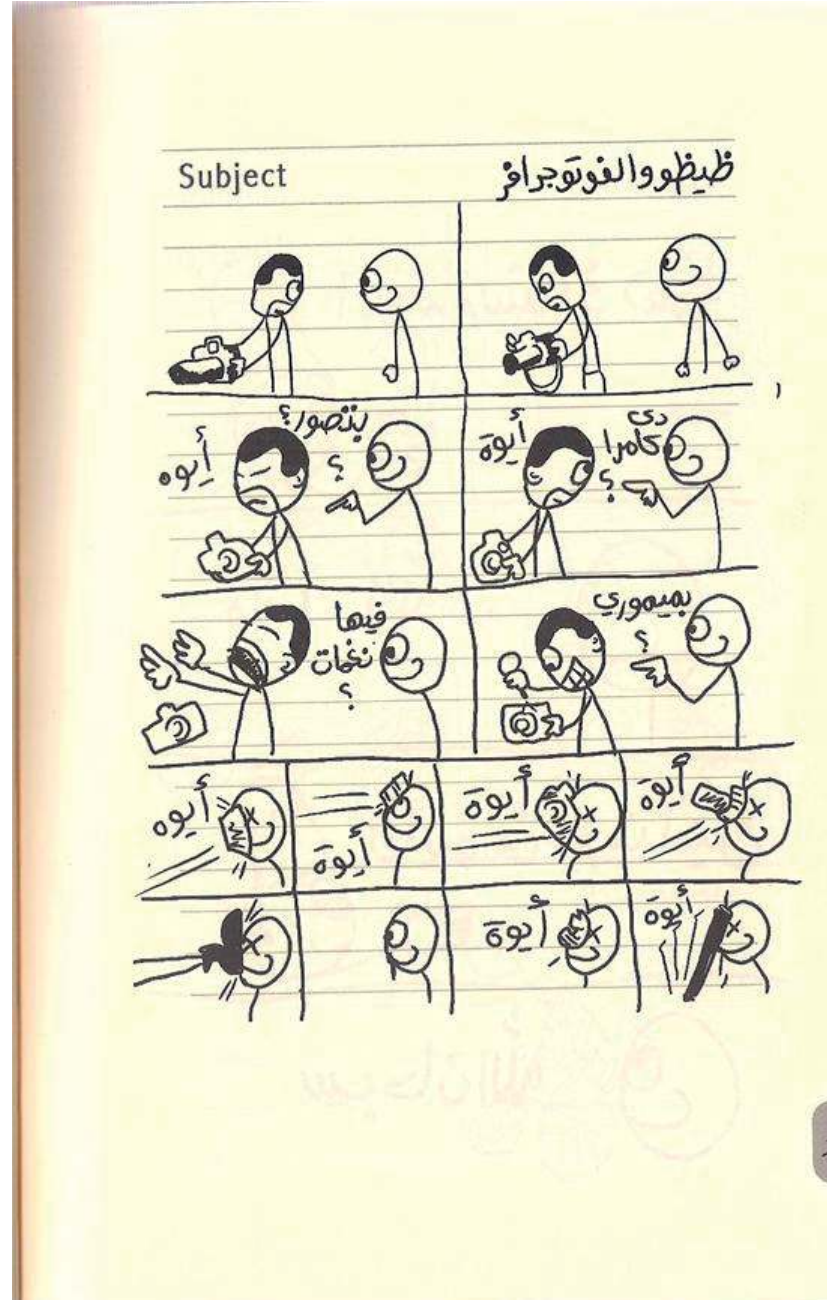 Subject
ظيظو والفوتوجرافر
دى
كامرا
؟
أيوة
بتتصور؟
؟
أيوه
بميموري
؟
فيها
نغمات
؟
أيوة
أيوة
أيوة
أيوة
أيوة
أيوة